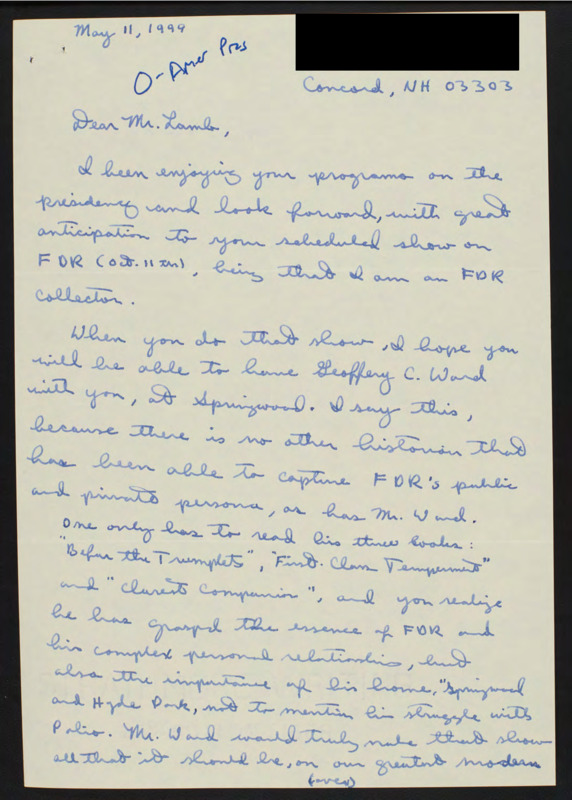 May 11, 1999
O-Amer Pres
Concord, NH 03303
Dear Mr. Lamb,
I been enjoying your programs on the
presidency and look forward, with great
anticipation to your scheduled show on
FDR (Oct. 11th), being that I am an FDR
collector.
When you do that show, I hope you
will be able to have Geoffery C. Ward
with you, at Springwood. I say this,
because there is no other historian that
has been able to capture FDR's public
and private persona, as has Mr. Ward.
One only has to read his three books:
"Before the Trumplets", "First-Class Temperment"
and "Closest Companion", and you realize
he has graspd the essence of FDR and
his complex personal relationships, but
also the importance of his home, "Springwood
and Hyde Park, not to mention his struggle with
Polio. Mr. Ward would truly make that show
all that it should be, on our greatest modern
(over)